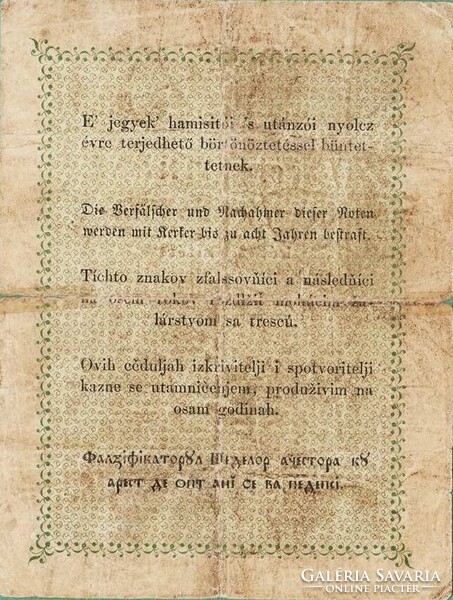 E' jegyek' hamisitói 's utánzói nyolcz
évre terjedhető börtönöztetéssel büntet-
tetnek.
Die Verfälscher und Nachahmer dieser Noten
werden mit Kerker bis zu acht Jahren bestraft.
Tíchto znakov zfalssovňíci a násleďňíci
na osem rokov
lárstvom sa trescú.
Ovih cěduljah izkrivitelji i spotvoritelji
kazne se utamničenjem, produživim na
osam godinah.
Фалзіфікаторꙋл Шеделор ачестора кꙋ
арест де опт анї се ва педепсі.
GALERIA SAVARIA
ONLINE PIACTER